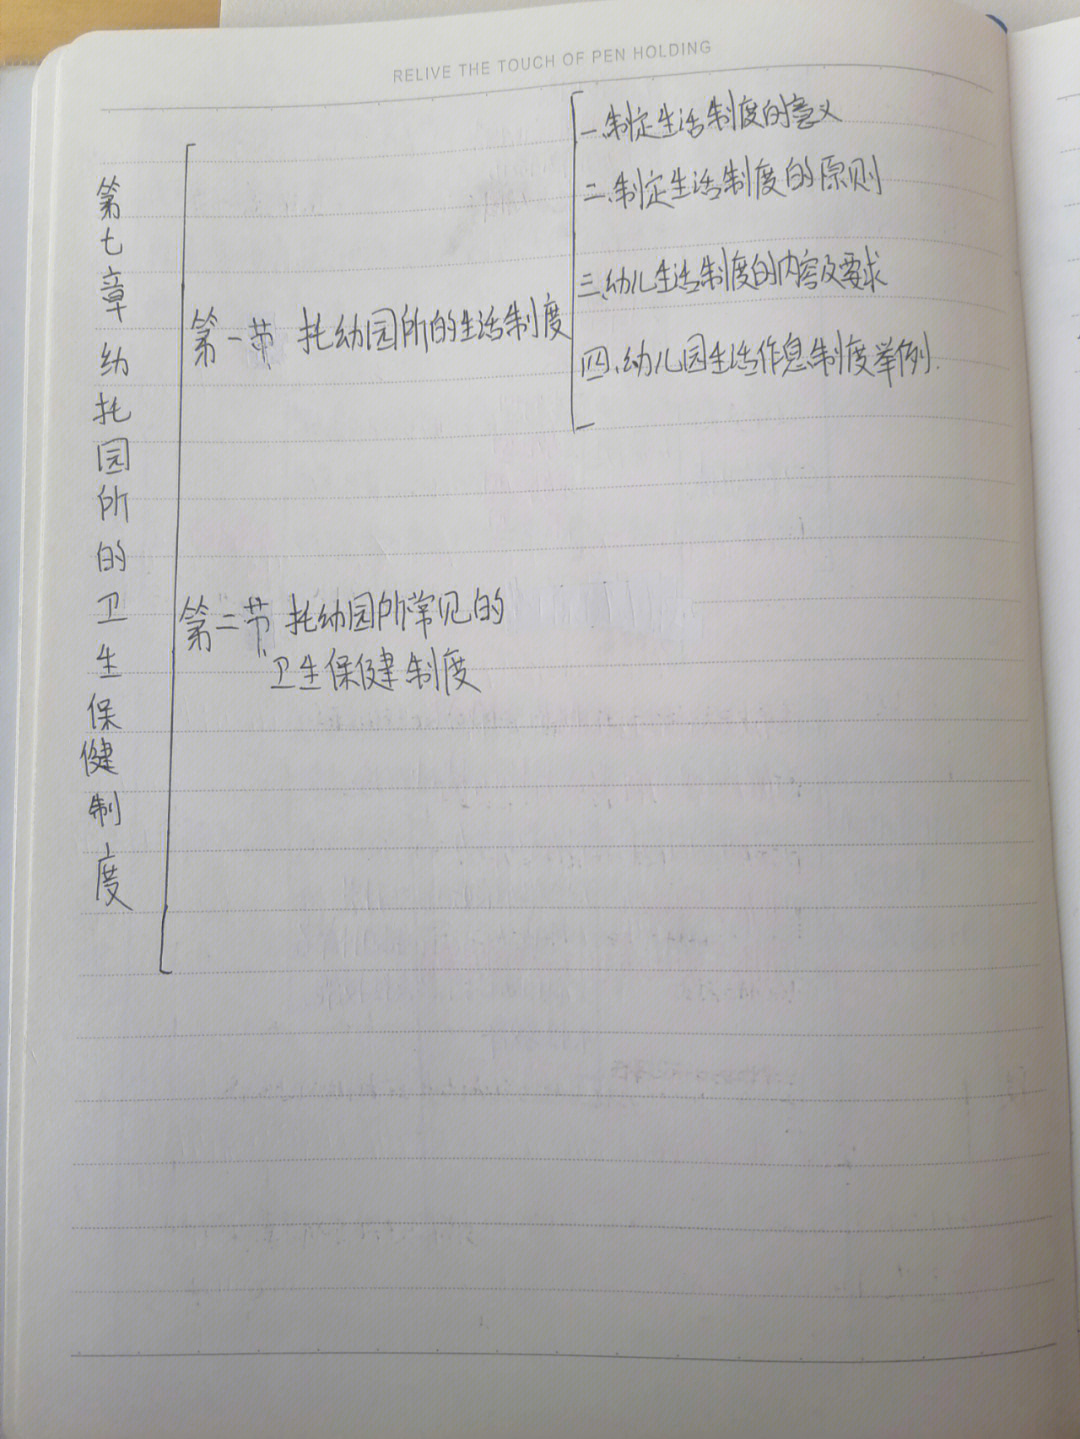 RELIVE THE TOUCH OF PEN HOLDING
第七章幼托园所的卫生保健制度
第一节 托幼园所的生活制度
一、制定生活制度的意义
二、制定生活制度的原则
三、幼儿生活制度的内容及要求
四、幼儿园生活作息制度举例.
第二节 托幼园所常见的
卫生保健制度